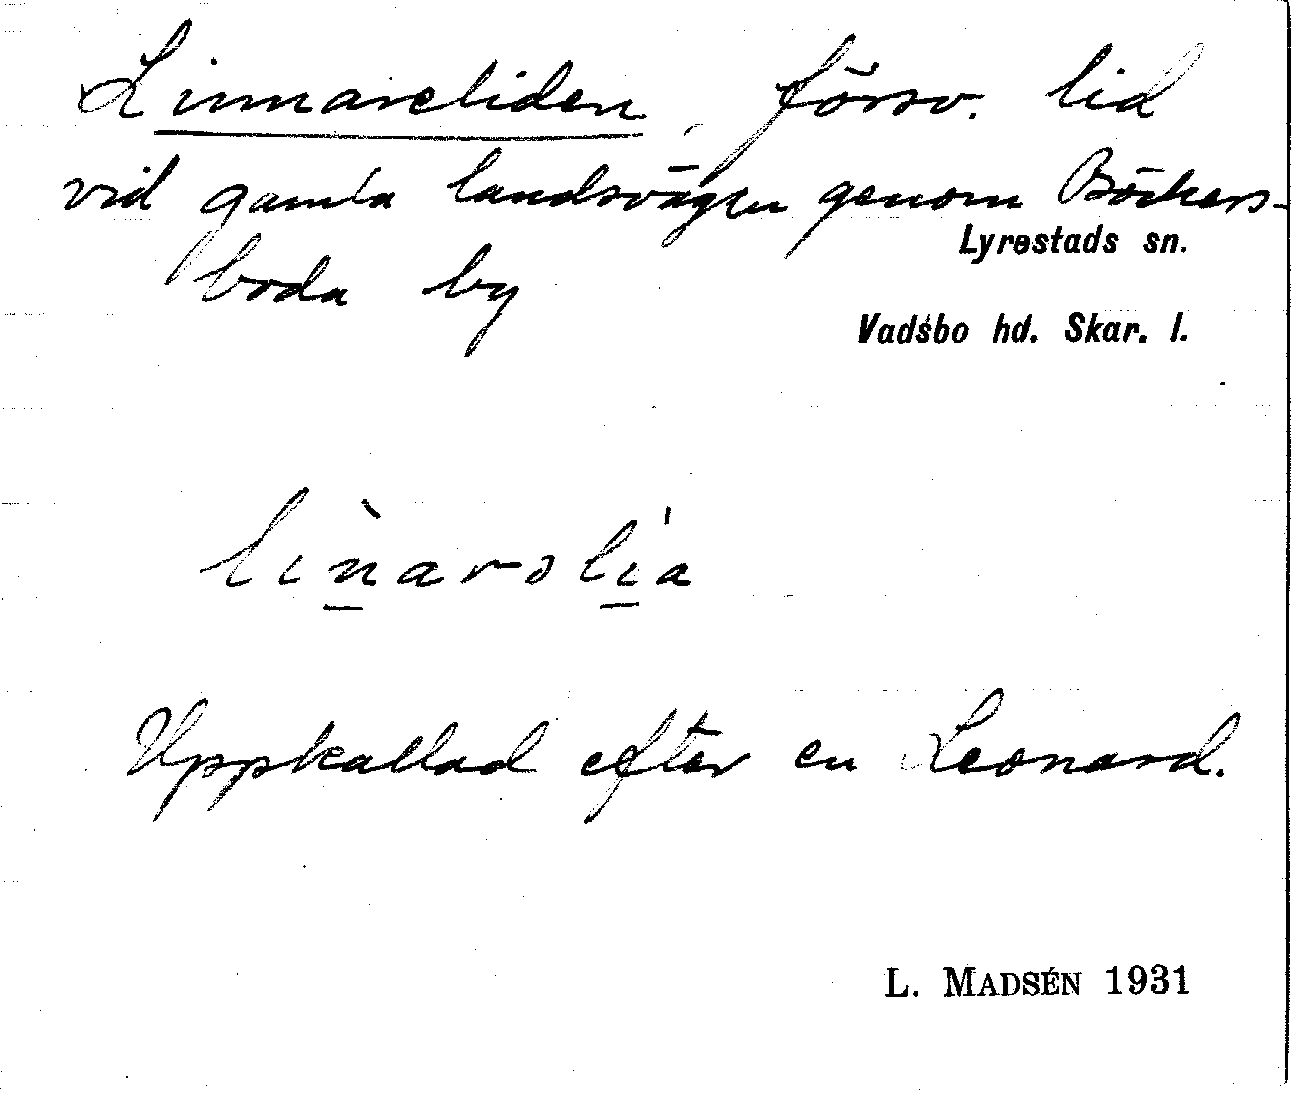 Linnareliden, försv. lid
vid gamla landsvägen genom Böckers-
boda by
Lyrestads sn.
Vadsbo hd. Skar. l.
lìnarəlía
Uppkallad efter en Leonard.
L. MADSÉN 1931